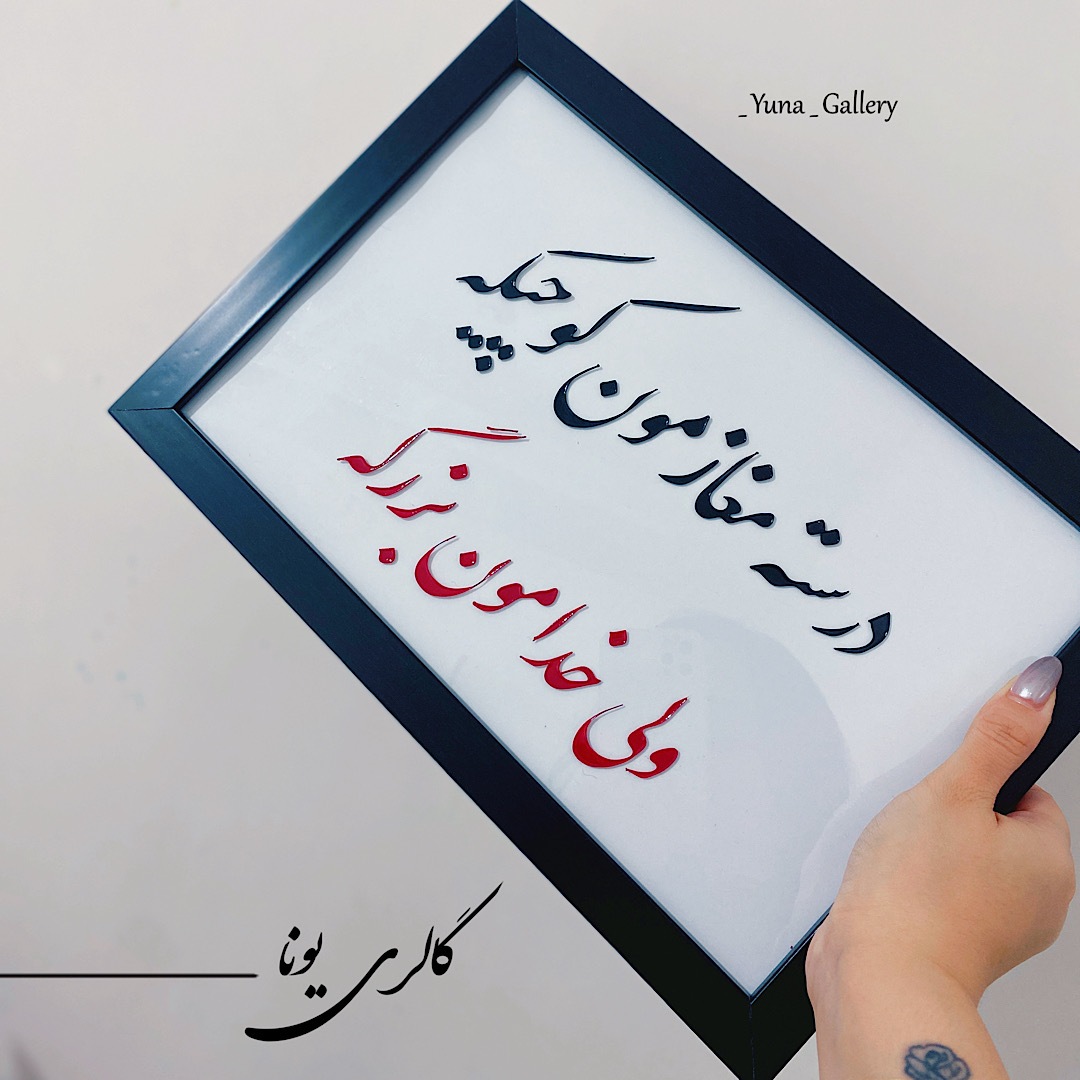 _Yuna_Gallery
درسته مغازمون کوچیکه
ولی خدامون بزرگه
گالری یونا